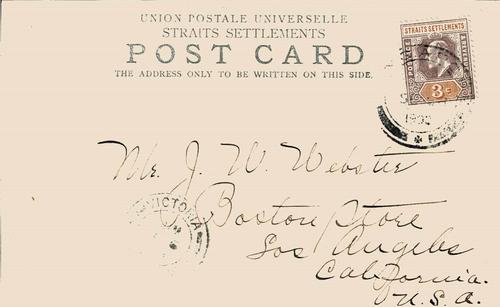 UNION POSTALE UNIVERSELLE
STRAITS SETTLEMENTS
POST CARD
THE ADDRESS ONLY TO BE WRITTEN ON THIS SIDE.
STRAITS SETTLEMENTS
POSTAGE
3c
Mr. J. W. Webster
VICTORIA
Boston Store
Los Angeles
California.
U.S.A.